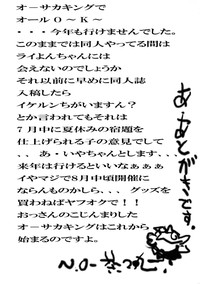 オーサカキングで
オールO〜K〜
・・・今年も行けませんでした。
このままでは同人やってる間は
ライよんちゃんには
会えないのでしょうか
それ以前に早めに同人誌
入稿したら
イケルンちがいますん?
とか言われてもそれは
7月中に夏休みの宿題を
仕上げられる子の意見でして
、、あ・いやちゃんとします、、、
来年は行けるといいなぁぁ・・
イヤマジで8月中頃開催に
ならんものかしら、、、グッズを
買わねばヤフオクで!!
おっさんのこじんまりした
オーサカキングはこれから
始まるのですよ。
あとがきです。